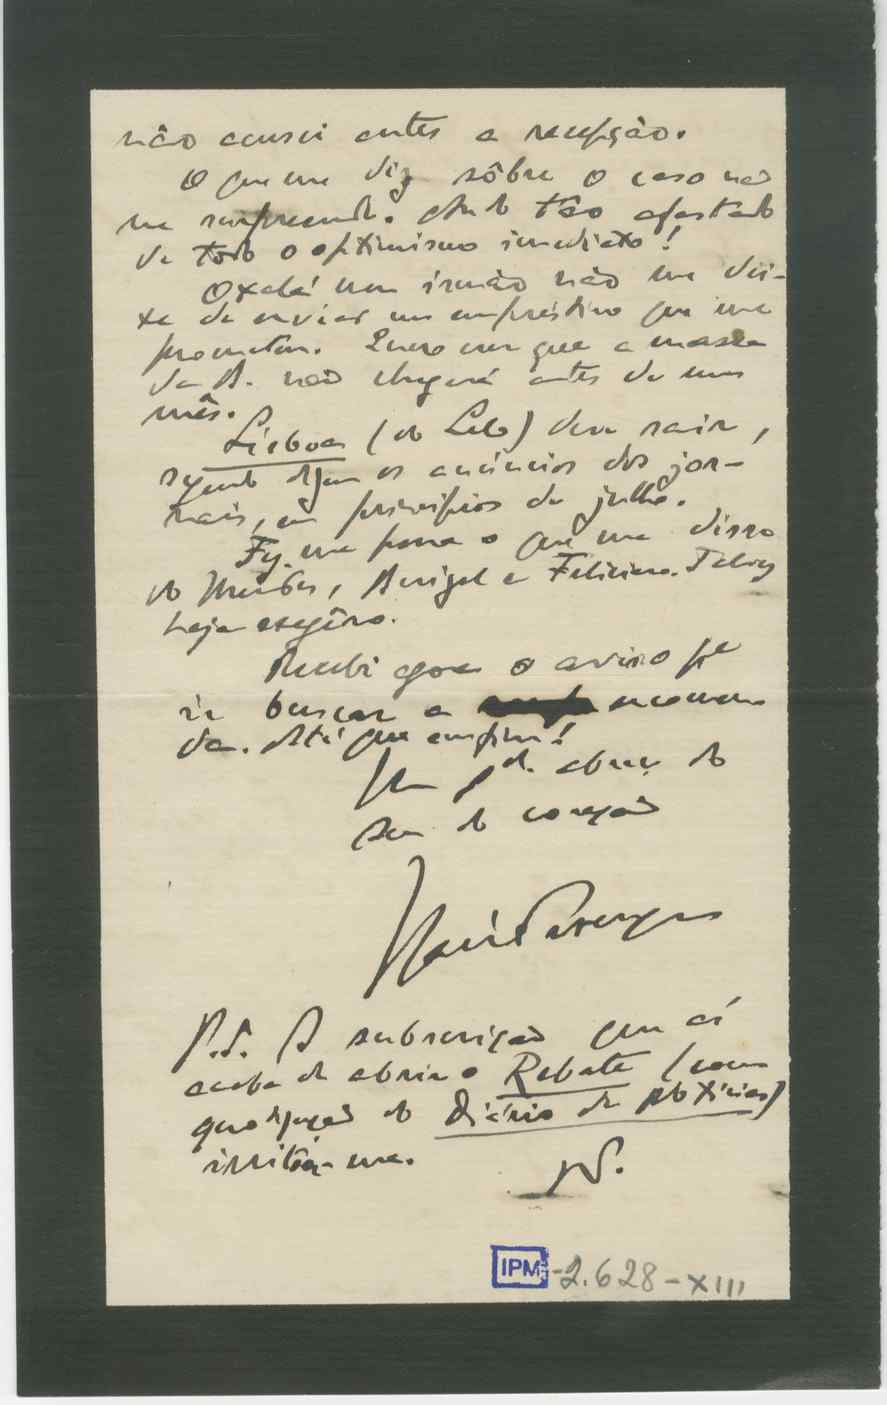 não acusei antes a recepção.
O que me diz sôbre o caso não
me surpreende. Ando tão afastado
de todo o optimismo imediato!
Oxalá meu irmão não me dei-
xe de enviar um empréstimo que me
prometeu. Quero crer que a massa
da A. não chegará antes de um
mês.
Lisboa (do Lelo) deve sair,
segundo dizem os anúncios dos jor-
nais, em princípios de julho.
pena o que me disse
do Mendes, e Feliciano. Talvez
haja exagêro.
Recebi agora o aviso pª
ir buscar a encomen
da. Até que enfim!
Um gd. abraço do
seu do coração
P.S. A subscrição que aí
acaba de abrir o Rebate (com
do Diário de Notícias)
irritou-me.
IPM -2.628-XIII